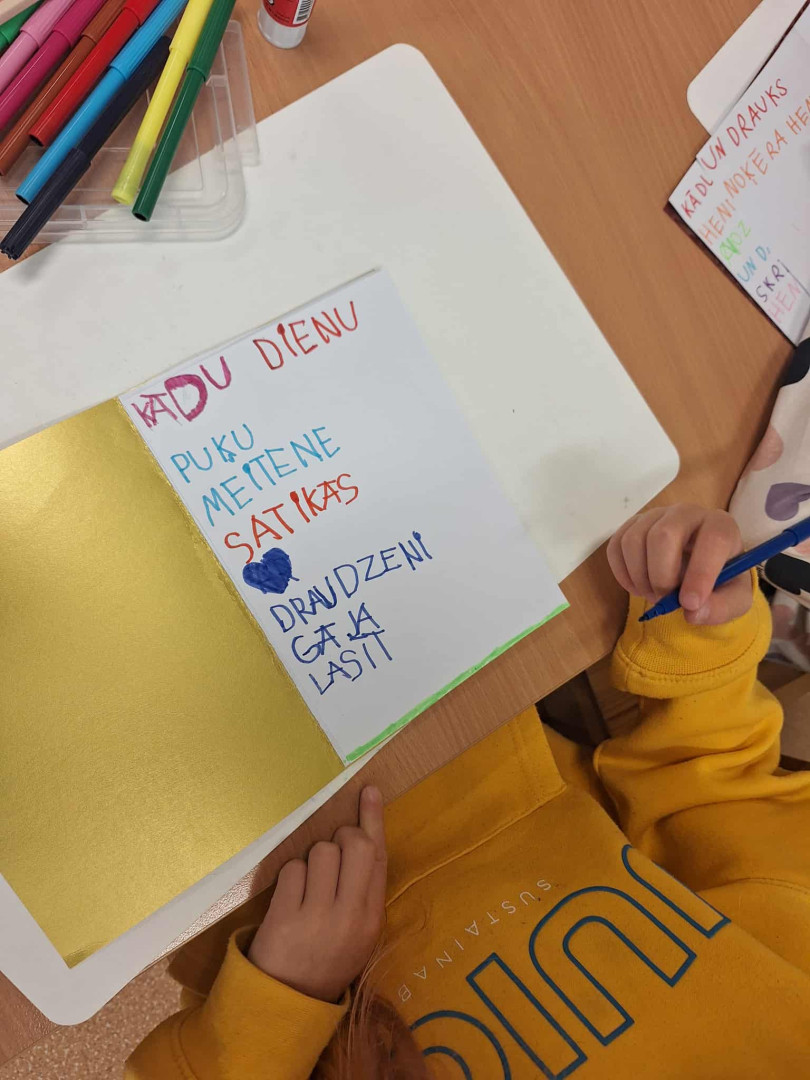 KĀDU DIENU
PUĶU
MEITENE
SATIKAS
DRAUDZENI
GAJA
LASIT
KĀDU
UN DRAUKS
HENIJ NOĶERA HEN
UN D.
SKRI
HEN
SUSTAINAB